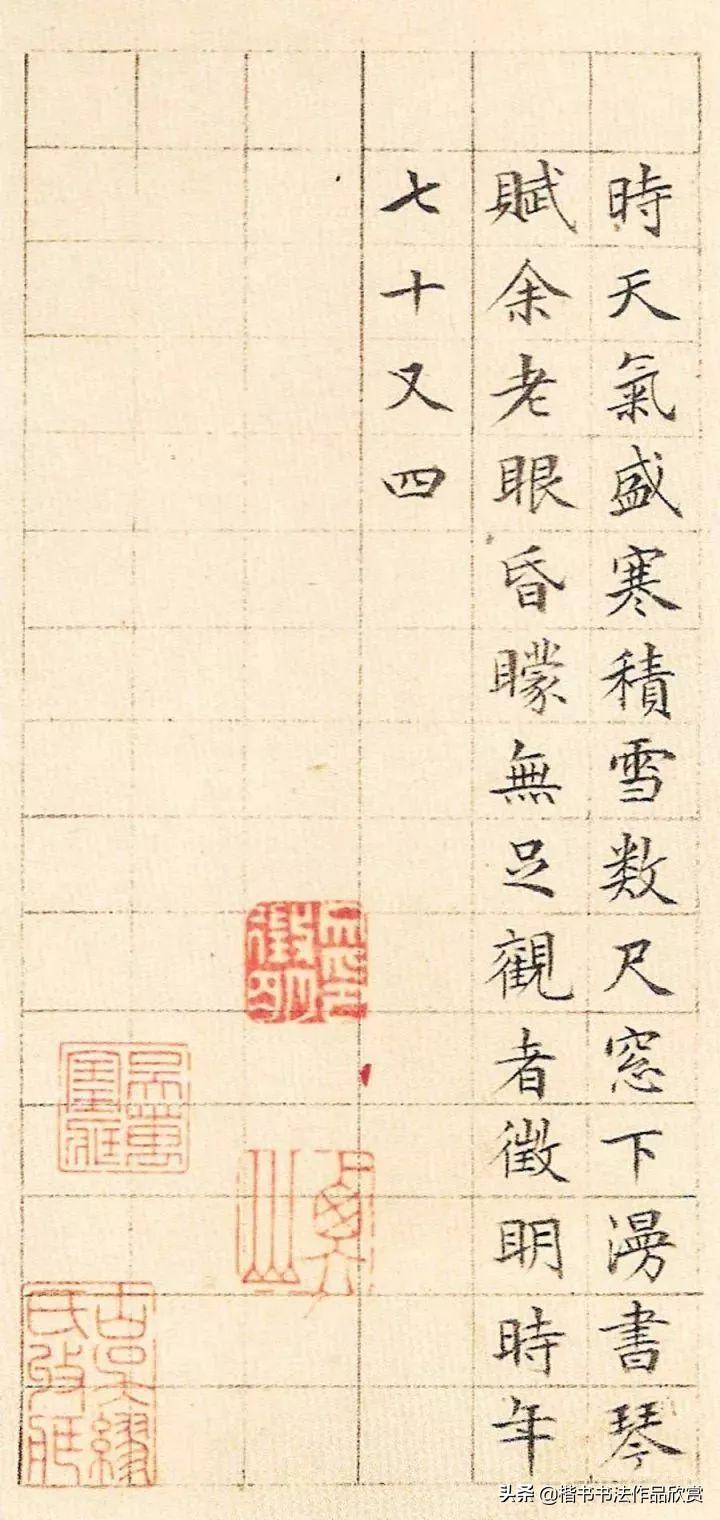 時天氣盛寒積雪数尺窓下漫書琴
賦余老眼昏矇無足觀者徴明時年
七十又四
頭条 @楷书书法作品欣赏